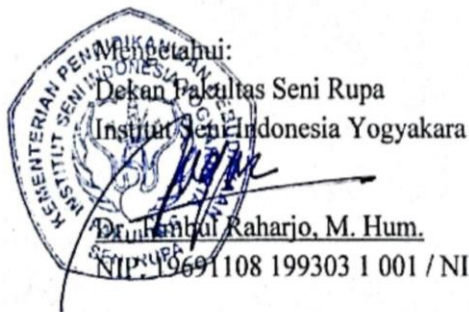 Mengetahui:
Dekan Fakultas Seni Rupa
Institut Seni Indonesia Yogyakara
Dr. Timbul Raharjo, M. Hum.
NIP. 19691108 199303 1 001 / NI
KEMENTERIAN PENDIDIKAN DAN KEBUDAYAAN
INSTITUT SENI INDONESIA YOGYAKARTA
FAKULTAS
SENI RUPA